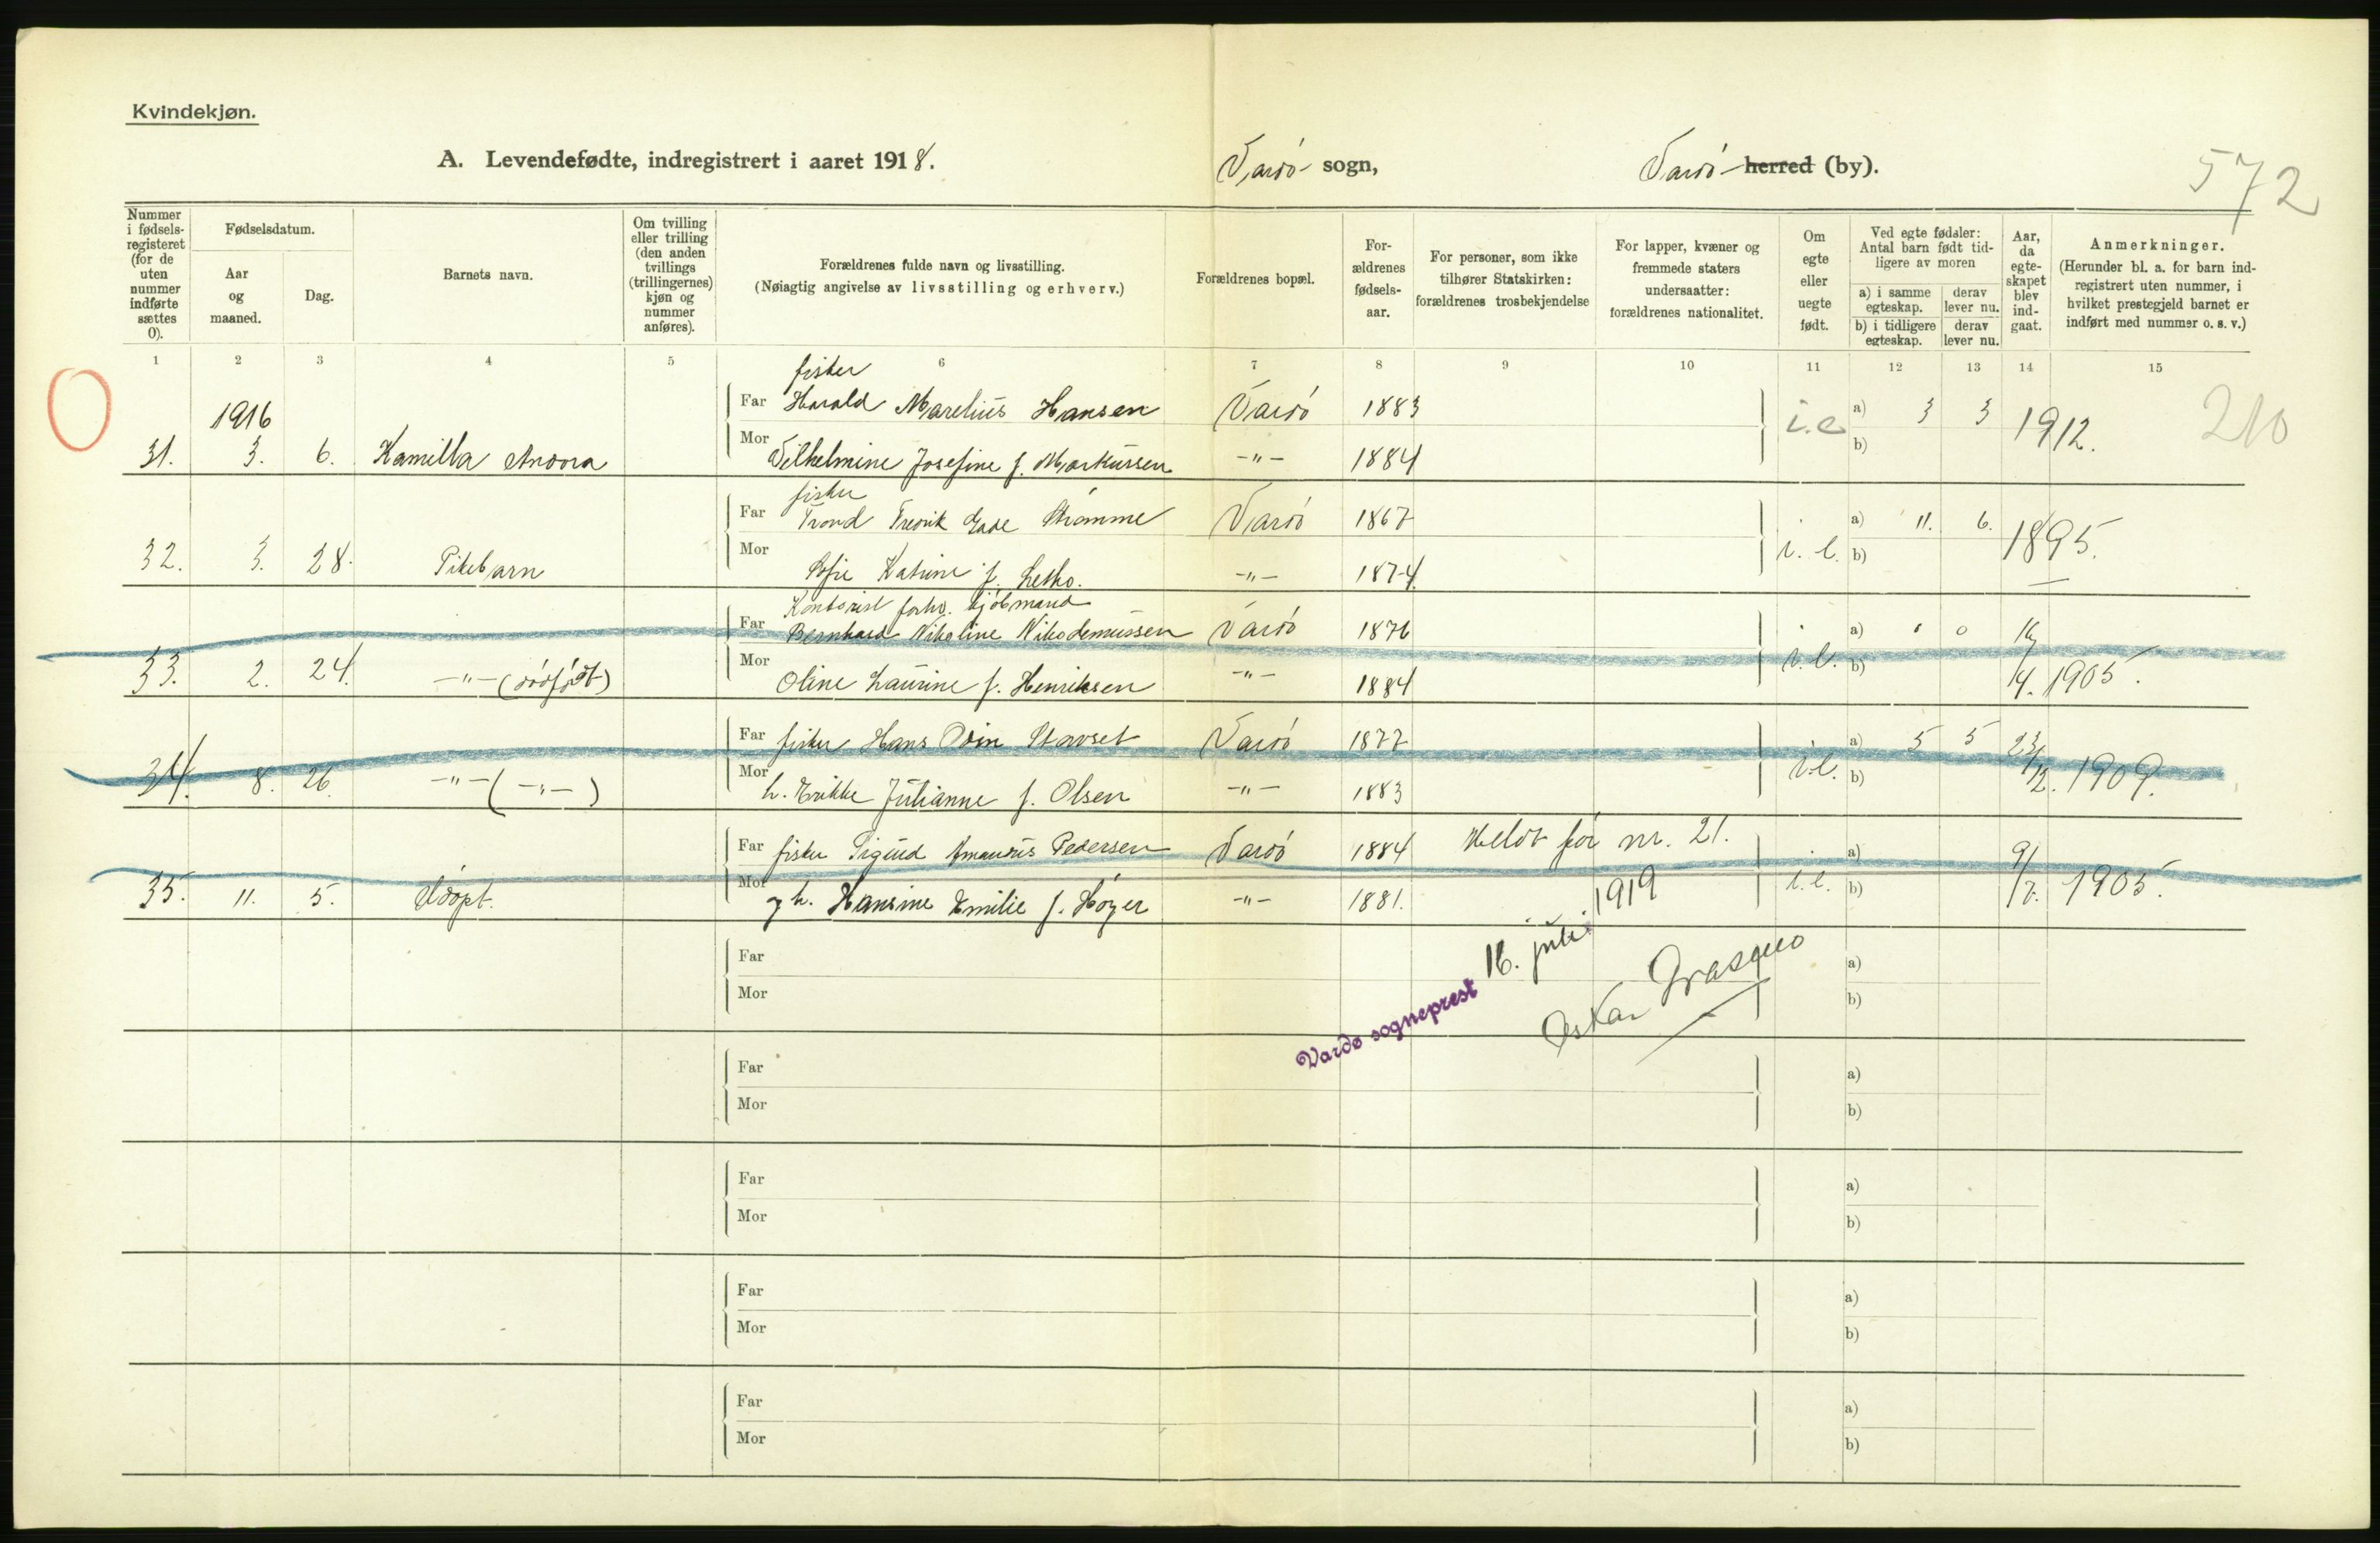 Kvindekjøn.
A. Levendefødte, indregistrert i aaret 1918. Vardö sogn, Vardö herred (by).
572
Nummer i fødsels-registeret (for de uten nummer indførte sættes 0).
Fødselsdatum.
Aar og maaned.
Dag.
Barnets navn.
Om tvilling eller trilling (den anden tvillings (trillingernes) kjøn og nummer anføres).
Forældrenes fulde navn og livsstilling.
(Nøiagtig angivelse av livsstilling og erhverv.)
Forældrenes bopæl.
For-ældrenes fødsels-aar.
For personer, som ikke tilhører Statskirken: forældrenes trosbekjendelse
For lapper, kvæner og fremmede staters undersaatter: forældrenes nationalitet.
Om egte eller uegte født.
Ved egte fødsler: Antal barn født tid-ligere av moren
a) i samme egteskap. derav lever nu.
b) i tidligere egteskap. derav lever nu.
Aar, da egte-skapet blev ind-gaat.
Anmerkninger.
(Herunder bl. a. for barn ind-registrert uten nummer, i hvilket prestegjeld barnet er indført med nummer o. s. v.)
1 2 3 4 5 6 7 8 9 10 11 12 13 14 15
fisker
1916 Far Harald Marelius Hansen Vardö 1883 i.e a) 3 3 1912. 210
31. 3. 6. Kamilla Andora Mor Vilhelmine Josefine f. Markussen -"- 1884 b)
fisker
Far Trond Fredrik Strömme Vardö 1867 a) 11. 6. 1895.
32. 3. 28. Pikebarn Mor Sofie Katrine f. -"- 1874. i. e. b)
Kontorist forhv. kjöbmand
Far Bernhard Nikoline Nikodemussen Vardö 1876 a) 0 16/
33. 2. 24. -"- (dödfödt) Mor Oline Laurine f. Henriksen -"- 1884 i.e. b) 4. 1905.
Far fisker Hans Stavset Vardö 1877 a) 5 5 23/
34. 8. 26. -"- (-"-) Mor h. Julianne f. Olsen -"- 1883 i.e. b) 12. 1909.
Far fisker Sigurd Amandus Pedersen Vardö 1884 Meldt för nr. 21. a) 9/
35. 11. 5. Udöpt. Mor h. Hansine Emilie f. Höyer -"- 1881. i.e. b) 7. 1905.
Vardø sogneprest 16. juli 1919
Oskar
Far a)
Mor b)
Far a)
Mor b)
Far a)
Mor b)
Far a)
Mor b)
Far a)
Mor b)